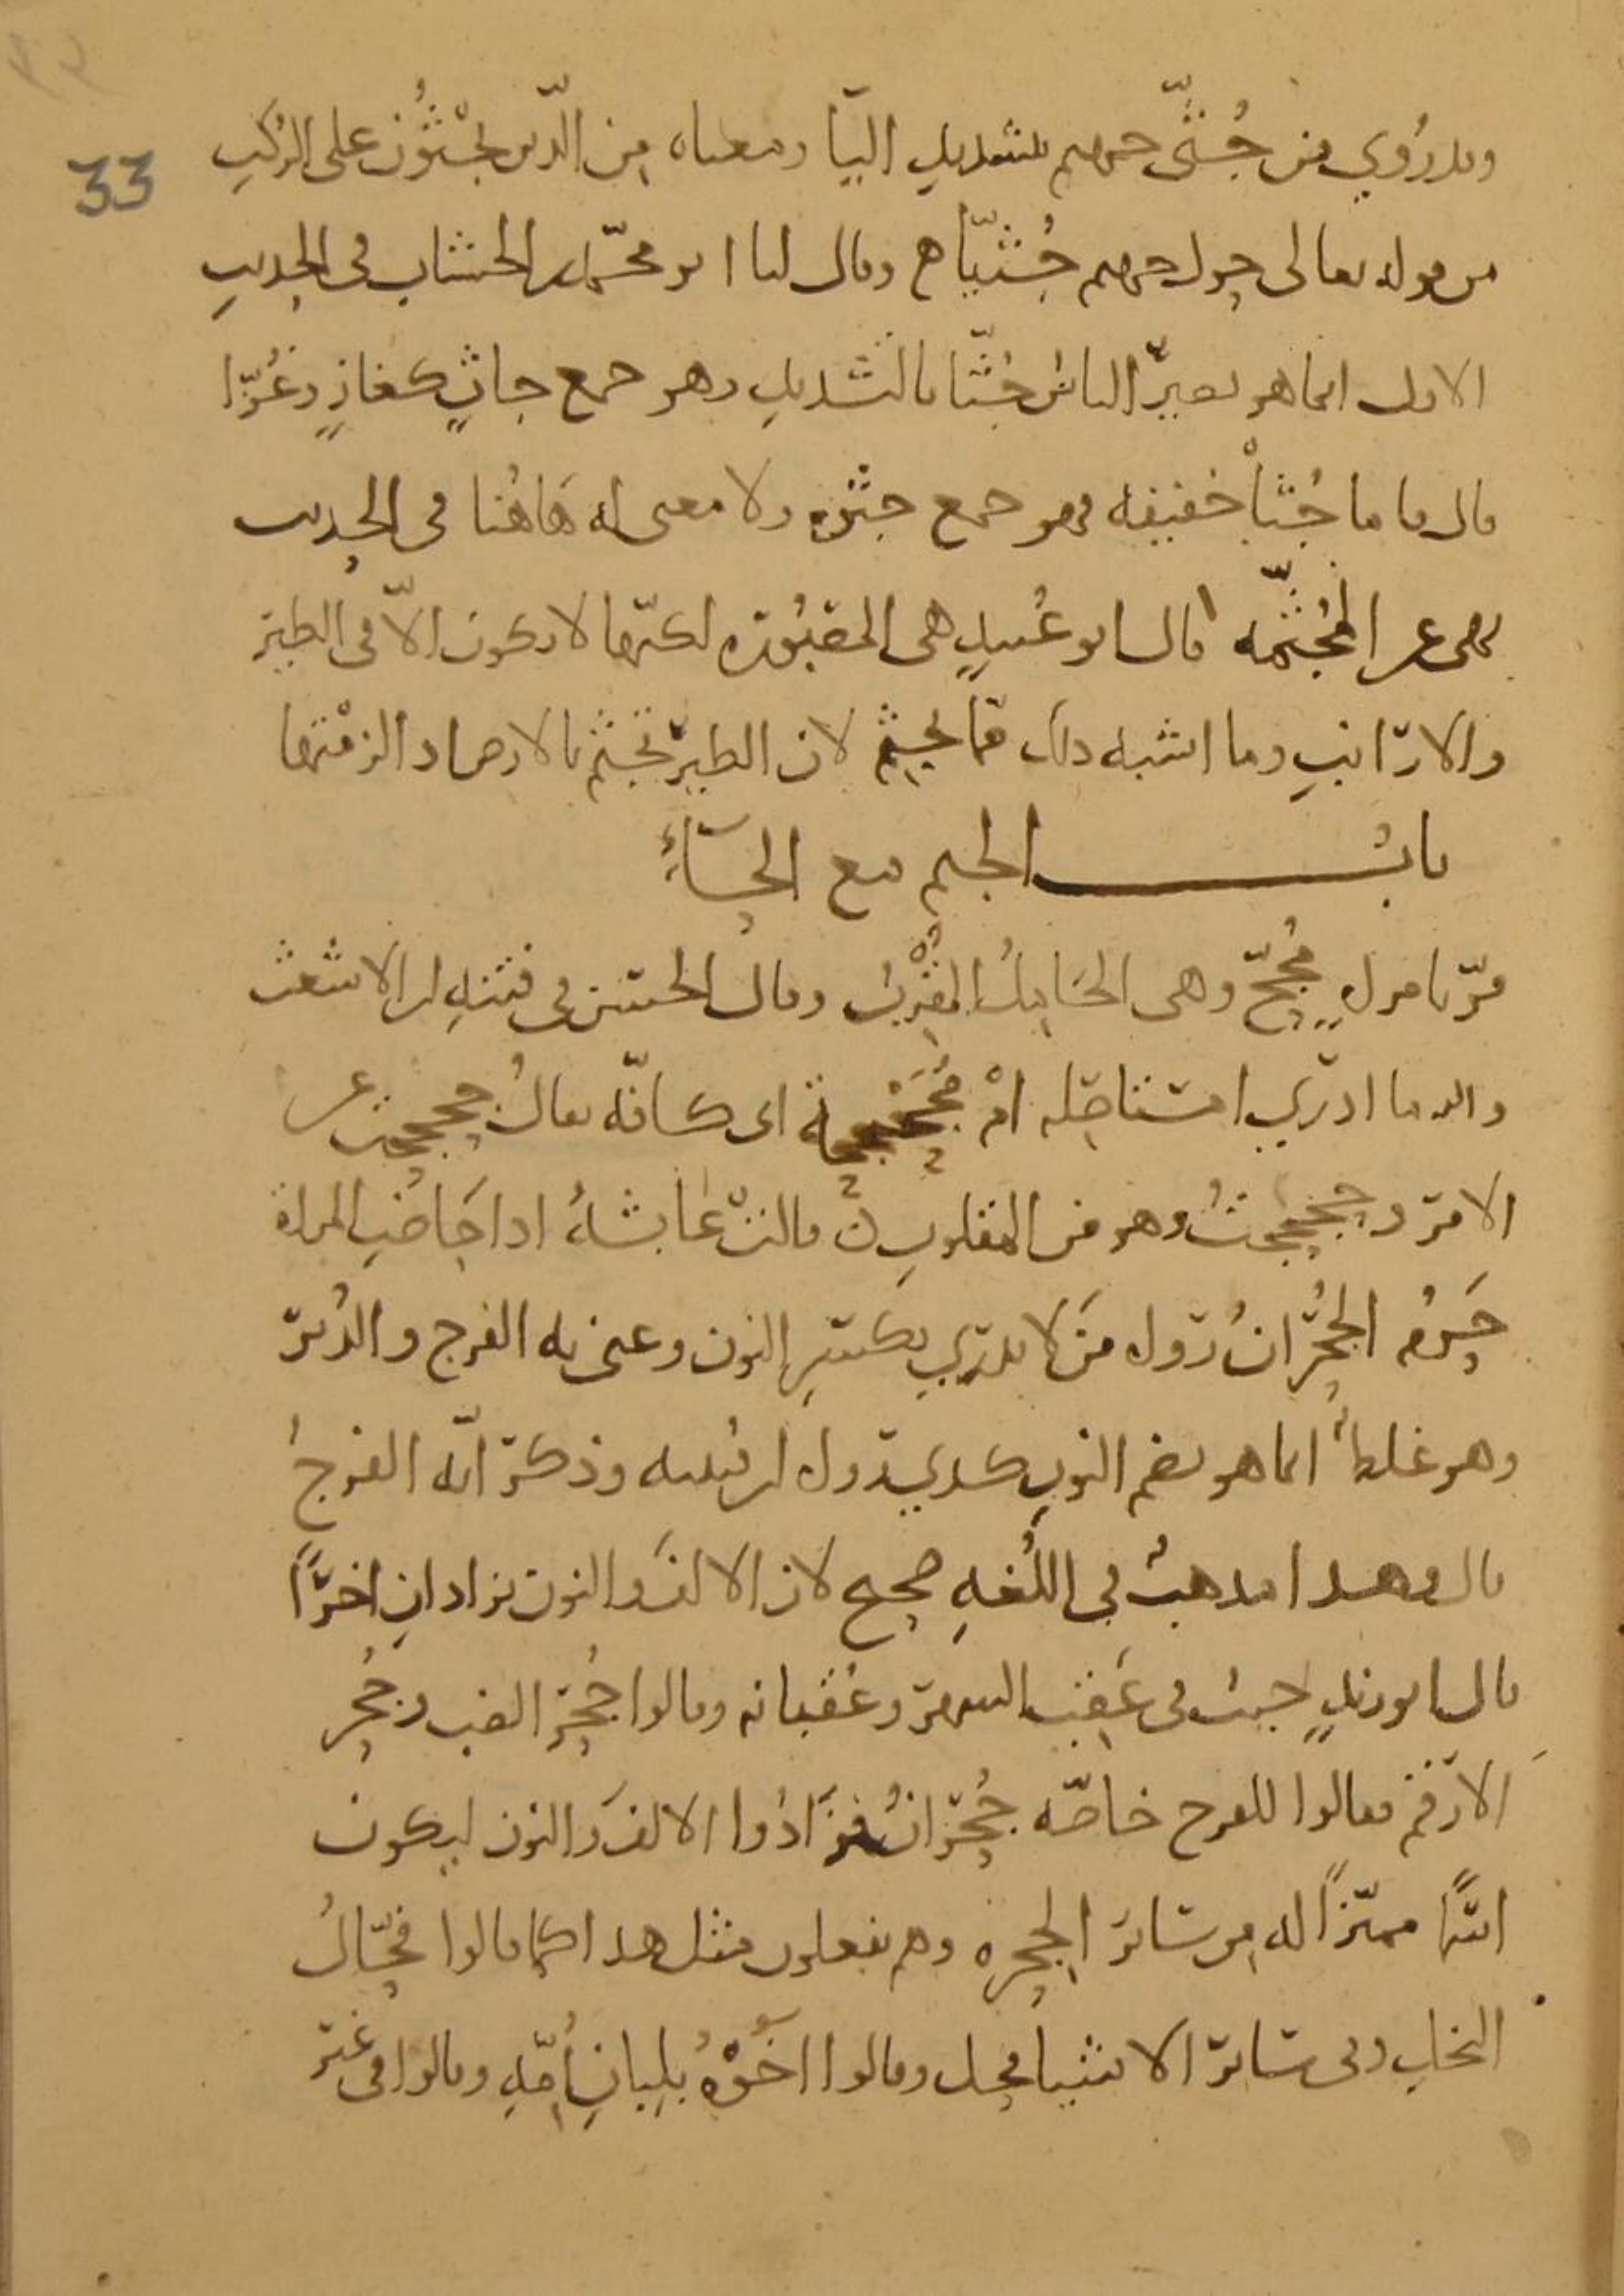 33
وقد رُوي من جُثِيّ جهنم بتشديدِ اليآ ومعناه مِن الّذين يجْثُوْن على الرُكَبِ
من قوله تعالى حول جهنم جُثِيّاً ه وقال لنا ابو محمّد بن الخشاب في الحديثِ
الاول انما هو يصيرُ الناسُ جُثًّا بالتشديدِ وهو جمع جاثٍ كغازٍ وغُزّا
قال فاما جُثاً خفيفه فهو جمع جثْوه ولا معنى له هَاهُنا في الحديث
نهى عن المجُثّمه قال ابو عُبيدٍ هي المصْبُوره لكنّها لا تكون الاّ في الطير
والارانبِ وما اشبه ذلك ممّا يجثِم لان الطير تجثم بالارض اذ الزمْتها
بابُ الجيم مع الحآءِ
مرّ بامراهٍ مُجحٍّ وهي الحَامِلُ المقْرِبُ وقال الحسن في فتنهِ ابن الاشعث
والله ما ادري امستاصله امْ مُجَحْجِحة اي كافّه يقالُ جحجحت عن
الامر وحجحجتُ وهو من المقلوبِ ن قالتْ عَايشهُ اذا حَاضتِ المراة
حَرُمَ الجُحْرَانُ رواه مَن لا يدري بكسرِ النون وعنى به الفرج والدُبرَ
وهو غلطٌ انما هو بضم النونِ كذي رواه ابن قتيبه وذكر انّه الفرجُ
قال وهذا مذهبٌ في اللُغهِ صحيح لان الالفَ والنون تزادانِ اخرًا
قال ابو زيدٍ جيت في عَقِبِ الشهر وعُقبانه وقالوا جُحْر الضب وجُحر
الارقم فقالوا للفرج خاصّه جُحْرانُ فزَادُوا الالفَ والنون ليكون
اسمًا مميّزاً له من سَائر الجحرهِ وهم يفعلون مثل هذا كما قالوا فُحّالُ
النخلِ وفي سَائر الاشيا فحل وقالوا اخُوْهُ بلِبانِ اُمّهِ وقالوا في غير